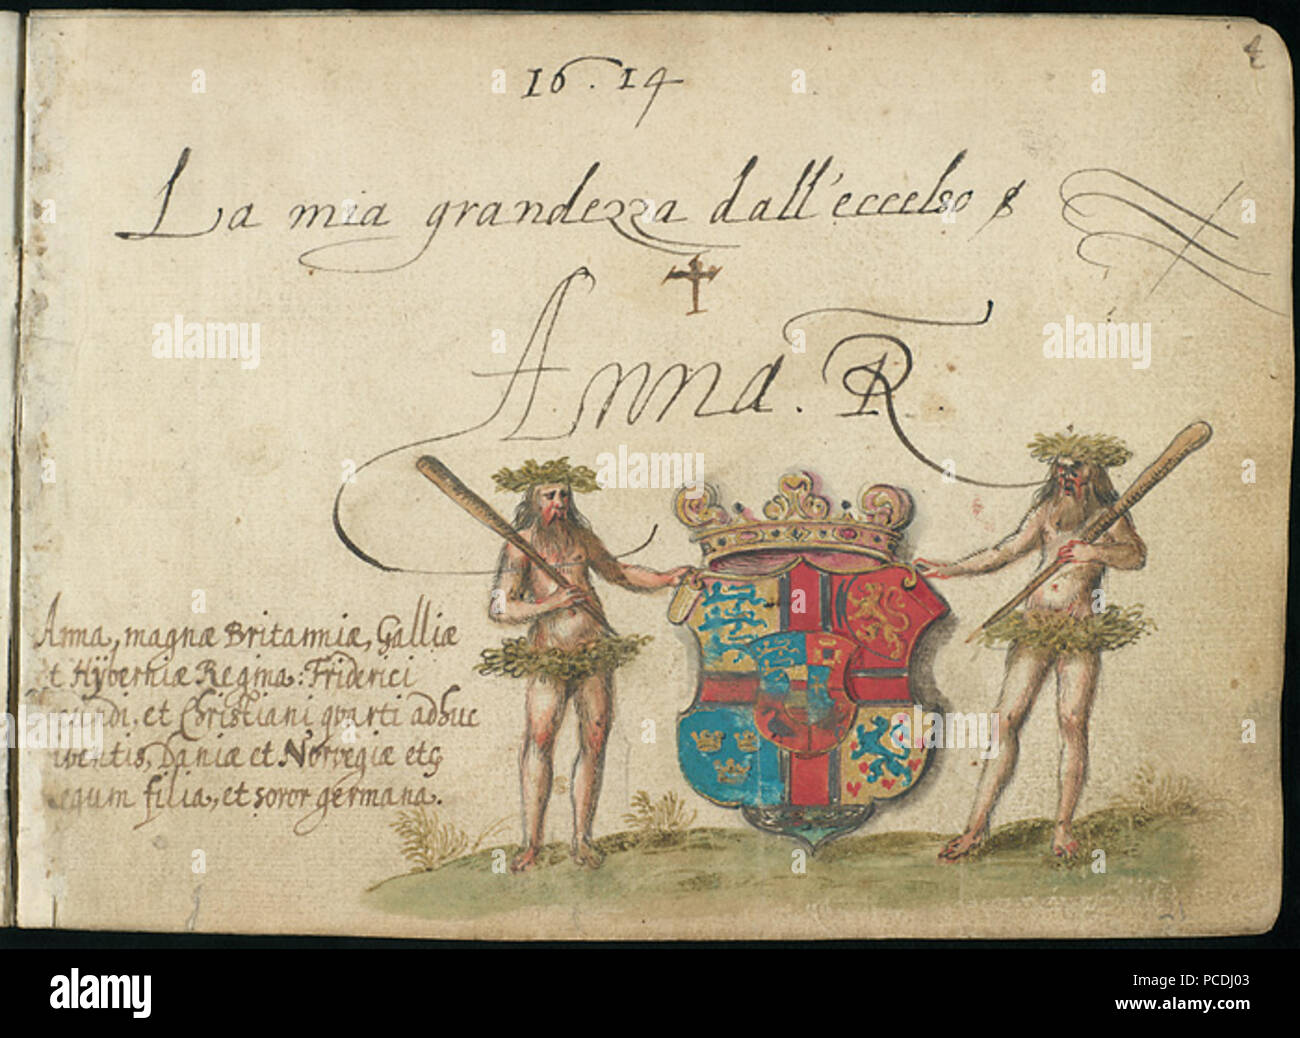 4
16.14
La mia grandezza dall'eccelso
Anna. R
Anna, magnæ Britanniæ, Galliæ
t Hÿberniæ Regina: Friderici
cundi, et Christiani qvarti adhuc
iventis, Daniæ et Norvegiæ etç
egum filia, et soror germana.
alamy
alamy stock photo
PCDJ03
www.alamy.com